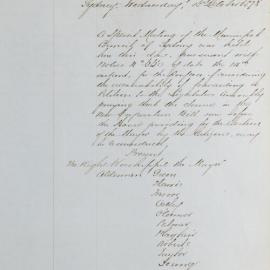 Sydney, Wednesday, October 1878
A Special Meeting of the Municipal
Council of Sydney was held
this day, pursuant with
Notice No of date the
instant, for the purpose of considering
the advisability of forwarding a
Petition to the Legislative Assembly
praying that the clause in the
New Corporation Bill now before
the House providing for the election
of the Mayor by the Citizens, may
be
Present
The Right Worshipful the Mayor
Aldermen Dean
Harris
Green
Oatley
Palmer
Playfair
Roberts
Taylor
Young